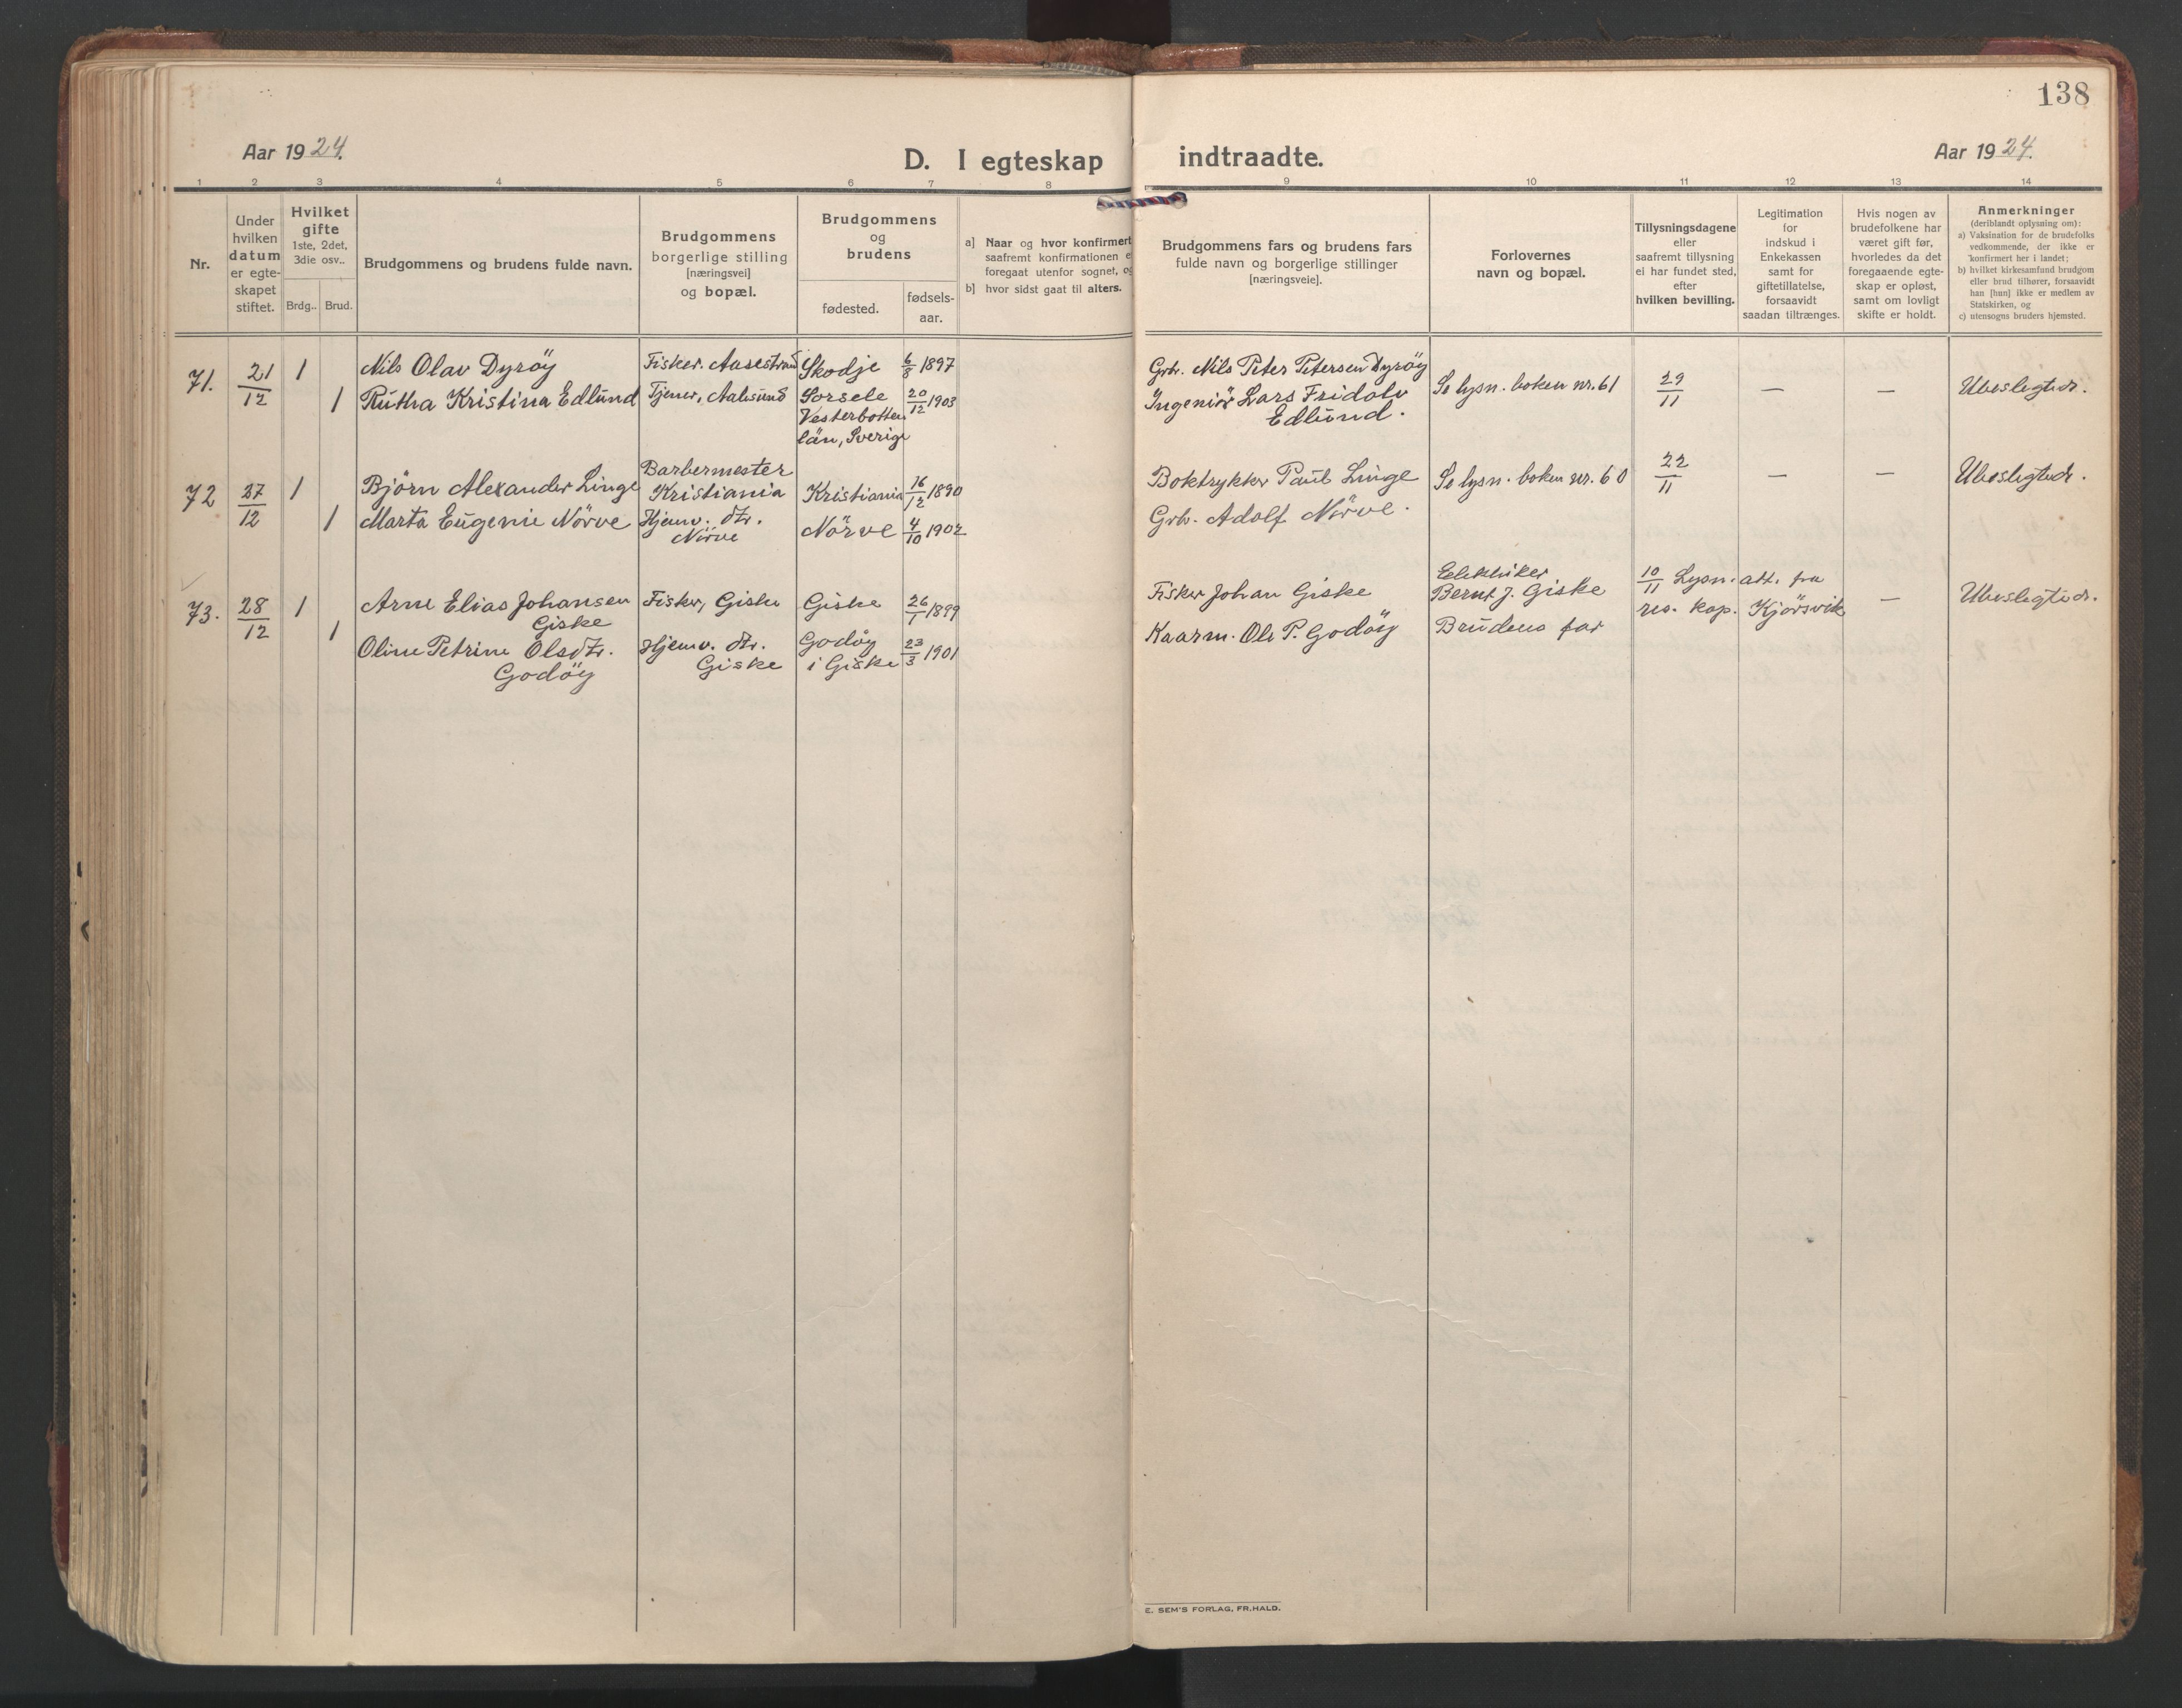 138
Aar 1924.
D. I egteskap indtraadte.
Aar 1924.
1 2 3 4 5 6 7 8 9 10 11 12 13 14
Nr.
Under
hvilken
datum
er egte-
skapet
stiftet.
Hvilket
gifte
1ste, 2det,
3die osv..
Brdg.. Brud.
Brudgommens og brudens fulde navn.
Brudgommens
borgerlige stilling
[næringsvei]
og bopæl.
Brudgommens
og
brudens
fødested.
fødsels-
aar.
a] Naar og hvor konfirmert
saafremt konfirmationen e
foregaat utenfor sognet, og
b] hvor sidst gaat til alters.
Brudgommens fars og brudens fars
fulde navn og borgerlige stillinger
[næringsveie].
Forlovernes
navn og bopæl.
Tillysningsdagene
eller
saafremt tillysning
ei har fundet sted,
efter
hvilken bevilling.
Legitimation
for
indskud i
Enkekassen
samt for
giftetillatelse,
forsaavidt
saadan tiltrænges.
Hvis nogen av
brudefolkene har
været gift før,
hvorledes da det
foregaaende egte-
skap er opløst,
samt om lovligt
skifte er holdt.
Anmerkninger
(deriblandt oplysning om):
a) Vaksination for de brudefolks
vedkommende, der ikke er
konfirmert her i landet;
b) hvilket kirkesamfund brudgom
eller brud tilhører, forsaavidt
han [hun] ikke er medlem av
Statskirken, og
c) utensogns bruders hjemsted.
71. 21/12 1 Nils Olav Dyröy Fisker. Aasestrand Skodje 6/8 1897 Grb. Nils Peter Petersen Dyröy Se lysn. boken nr. 61 29/11 — — Ubeslegtedr.
1 Rutha Kristina Edlund Tjener, Aalesund Sorsele 20/12 1903 Ingeniör Lars Fridolv
Vesterbotten Edlund.
län, Sverige
72 27/12 1 Björn Alexander Linge Barbermester Kristiania 16/12 1890 Boktrykker Paul Linge Se lysn. boken nr. 60 22/11 — — Ubeslegtedr.
Kristiania
1 Marta Eugenie Nörve Hjemv. dtr. Nörve 4/10 1902 Grb. Adolf Nörve.
Nörve
73. 28/12 1 Arne Elias Johansen Fisker, Giske Giske 26/1 1899 Fisker Johan Giske Bernt J. Giske 10/11 Lysn. att. fra — Ubeslegtedr.
Giske res. kap. Kjörsvik
1 Oline Petrine Olsdtr. Hjemv. dtr. Godöy 23/3 1901 Kaarm. Ole P. Godöy Brudens far
Godöy Giske i Giske
E. SEM'S FORLAG, FR.HALD.